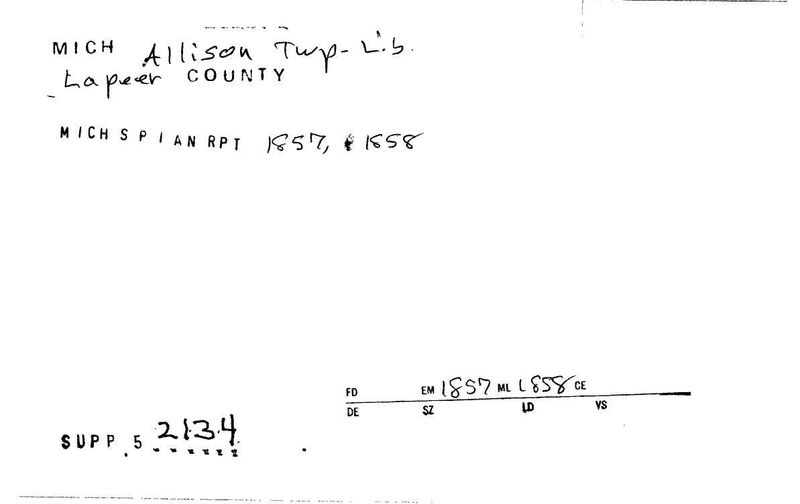 MICH Allison Twp. Lib.
Lapeer COUNTY
MICH S P I AN RPT 1857, & 1858
FD EM 1857 ML 1858 CE
DE SZ LD VS
SUPP. 5 2134